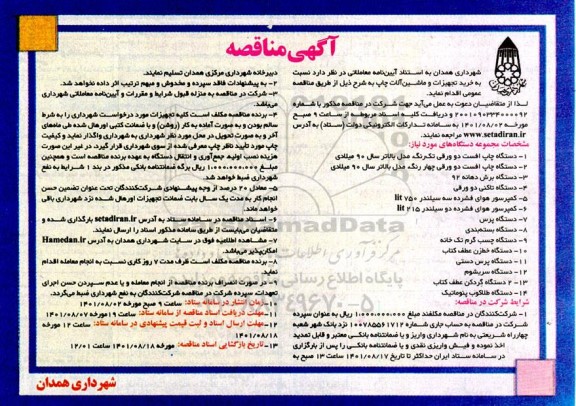 آگهی مناقصه
شهرداری همدان به استناد آیین‌نامه معاملاتی در نظر دارد نسبت
به خرید تجهیزات و ماشین‌آلات چاپ به شرح ذیل از طریق مناقصه
عمومی اقدام نماید.
لـذا از متقاضیـان دعوت به عمل می‌آید جهت شـرکت در مناقصه مذکور با شماره
۲۰۰۱۰۹۰۳۴۴۰۰۰۰۹۲ و دریافت کلیه اسناد مربوطه از ساعت ۹ صبح
مورخه ۱۴۰۱/۰۸/۰۲ به سـامانه تـدارکات الکترونیکی دولت (ستاد) به آدرس
www.setadiran.ir مراجعه نمایند.
مشخصات مجموعه دستگاه‌های مورد نیاز:
۱- دستگاه چاپ افست دو ورقی تک‌رنگ مدل بالاتر سال ۹۰ میلادی
۲- دستگاه چاپ افست دو ورقی چهار رنگ مدل بالاتر سال ۹۰ میلادی
۳- دستگاه برش دهانه ۹۲
۴- دستگاه تاکنی دو ورقی
۵- کمپرسور هوای فشرده سه سیلندر ۷۵۰ lit
۶- کمپرسور هوای فشرده دو سیلندر ۲۱۵ lit
۷- دستگاه پرس
۸- دستگاه بسته‌بندی
۹- دستگاه چسب گرم تک خانه
۱۰- دستگاه خط‌زن عطف کتاب
۱۱- دستگاه پرس دستی
۱۲- دستگاه سریشوم
۱۳- دستگاه گردکن عطف کتاب
۱۴- دستگاه طلاکوب پنوماتیک
شرایط شرکت در مناقصه:
۱- شرکت‌کنندگان در مناقصه مکلفند مبلغ ۱/۰۰۰/۰۰۰/۰۰۰ ریال به عنوان سپرده
شرکت در مناقصه به حساب جاری شماره ۱۰۰۷۸۵۵۶۱۷۱۲ نزد بانک شهر شعبه
چهارراه شریعتی به نام شهرداری واریز و یا ضمانتنامه بانکـی معتبر و قابل تمدید
اخذ نموده و فیش واریزی نقدی و یا ضمانتنامه بانکـی را پس از بارگزاری
در سامانه ستاد ایران حداکثر تا تاریخ ۱۴۰۱/۰۸/۱۷ ساعت ۱۳ صبح به
دبیرخانه شهرداری مرکزی همدان تسلیم نمایند.
۲- به پیشنهادات فاقد سپرده و مخدوش و مبهم ترتیب اثر داده نخواهد شد.
۳- شرکت در مناقصه به منزله قبول شرایط و مقررات و آیین‌نامه معاملاتی شهرداری
می‌باشد.
۴- برنده مناقصه مکلف است کلیه تجهیزات مورد درخواست شهرداری را به شرط
سالم بودن و به صورت آماده به کار (روشن) و با ضمانت کتبی اورهال شده طی ماه‌های
آخر و به صورت تحویل در محل مورد نظر شهرداری به شهرداری واگذار نماید و کیفیت
چاپ مورد تأیید ناظر چاپ معرفی شده از سوی شهرداری قرار گیرد، در غیر این صورت
هزینه نصب اولیه، جمع‌آوری و انتقال دستگاه به عهده برنده مناقصه است و همچنین
مبلغ ۱/۰۰۰/۰۰۰/۰۰۰ ریال برگه ضمانتنامه بانکی مذکور در بند ۱ شرایط به نفع
شهرداری ضبط خواهد شد.
۵- معادل ۲۰ درصد از وجه پیشنهادی شرکت‌کنندگان تحت عنوان تضمین حسن
انجام کار به مدت یک سال بابت ضمانت تجهیزات اورهال شده نزد شهرداری باقی
خواهد ماند.
۶- اسناد مناقصه در سامانه ستاد به آدرس setadiran.ir بارگذاری شده و
متقاضیان می‌بایست از طریق سامانه مذکور اسناد را ارسال نمایند.
۷- مشاهده اطلاعیه فوق در سایت شهرداری همدان به آدرس Hamedan.ir
امکان‌پذیر می‌باشد.
۸- برنده مناقصه مکلف است ظرف مدت ۷ روز کاری نسبت به انجام معامله اقدام
نماید.
۹- در صورت انصراف برنده مناقصه از انجام معامله و یا عدم سپردن حسن اجرای
تعهدات سپرده شرکت در مناقصه شرکت‌کنندگان به نفع شهرداری ضبط می‌گردد.
۱۰- زمان انتشار در سامانه ستاد: ساعت ۹ صبح مورخه ۱۴۰۱/۰۸/۰۲
۱۱- مهلت دریافت اسناد مناقصه از سامانه ستاد: ساعت ۱۹ مورخه ۱۴۰۱/۰۸/۰۷
۱۲- مهلت ارسال اسناد و ثبت قیمت پیشنهادی در سامانه ستاد: ساعت ۱۲ مورخه
۱۴۰۱/۰۸/۱۸
۱۳- تاریخ بازگشایی اسناد مناقصه: مورخه ۱۴۰۱/۰۸/۱۸ ساعت ۱۲/۰۱
شهرداری همدان